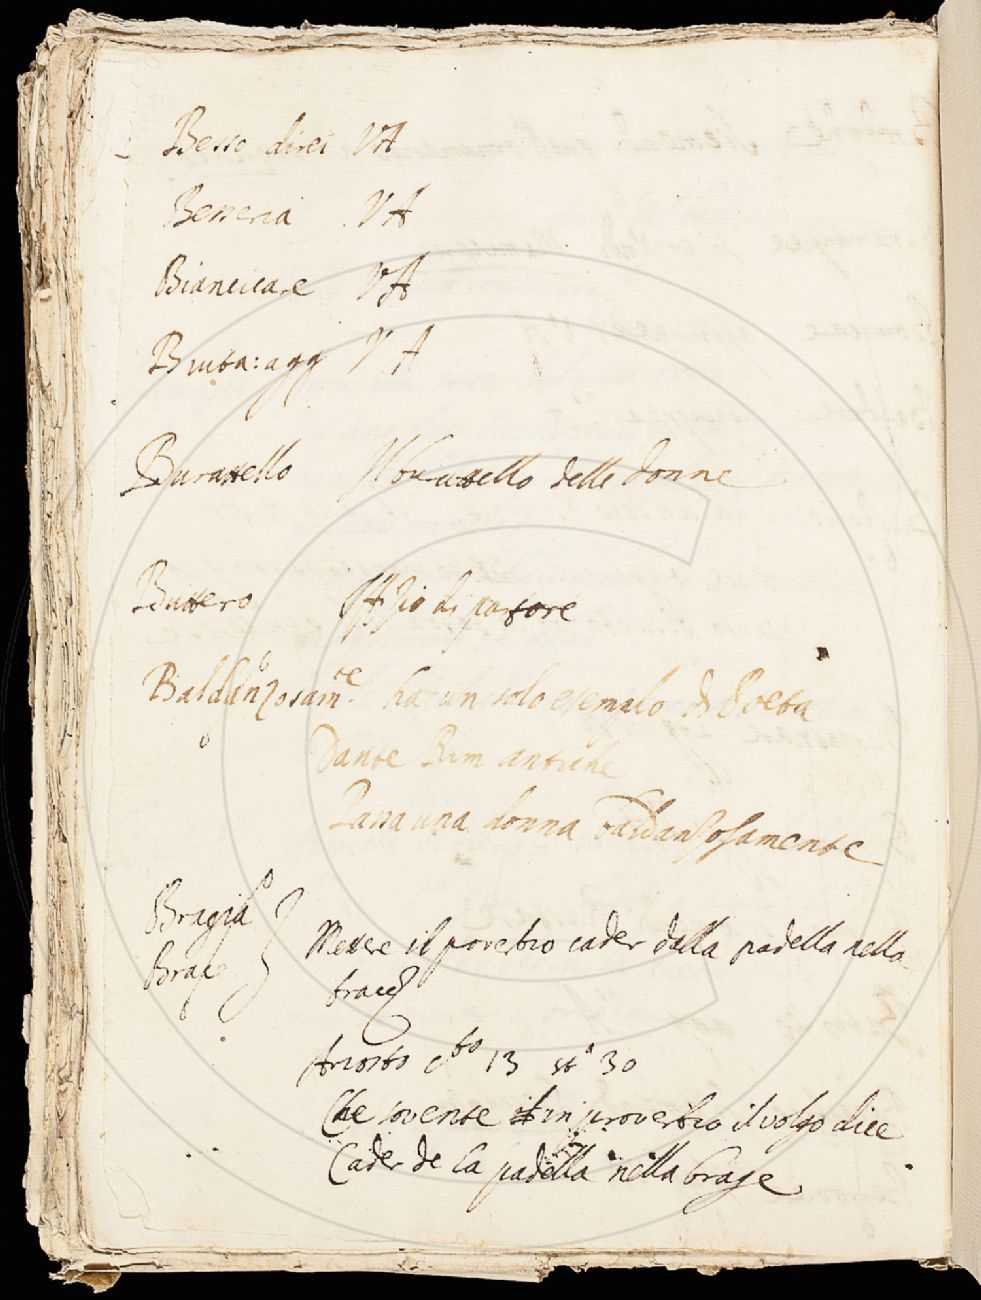 Besso direi VA
Besseria VA
Biancicare VA
Bruta: agg VA
Burattello Il burattello delle donne
Buttero Offizio di pastore
Baldanzosam.te ha un solo esempio di Poeta
Dante Rim antiche
Passa una donna baldanzosamente
Bragia
Brace Mettere il proverbio cader dalla padella nella
brace
Ariosto c.to 13 st.a 30
Che sovente in proverbio il volgo dice
Cader de la padella nella brage